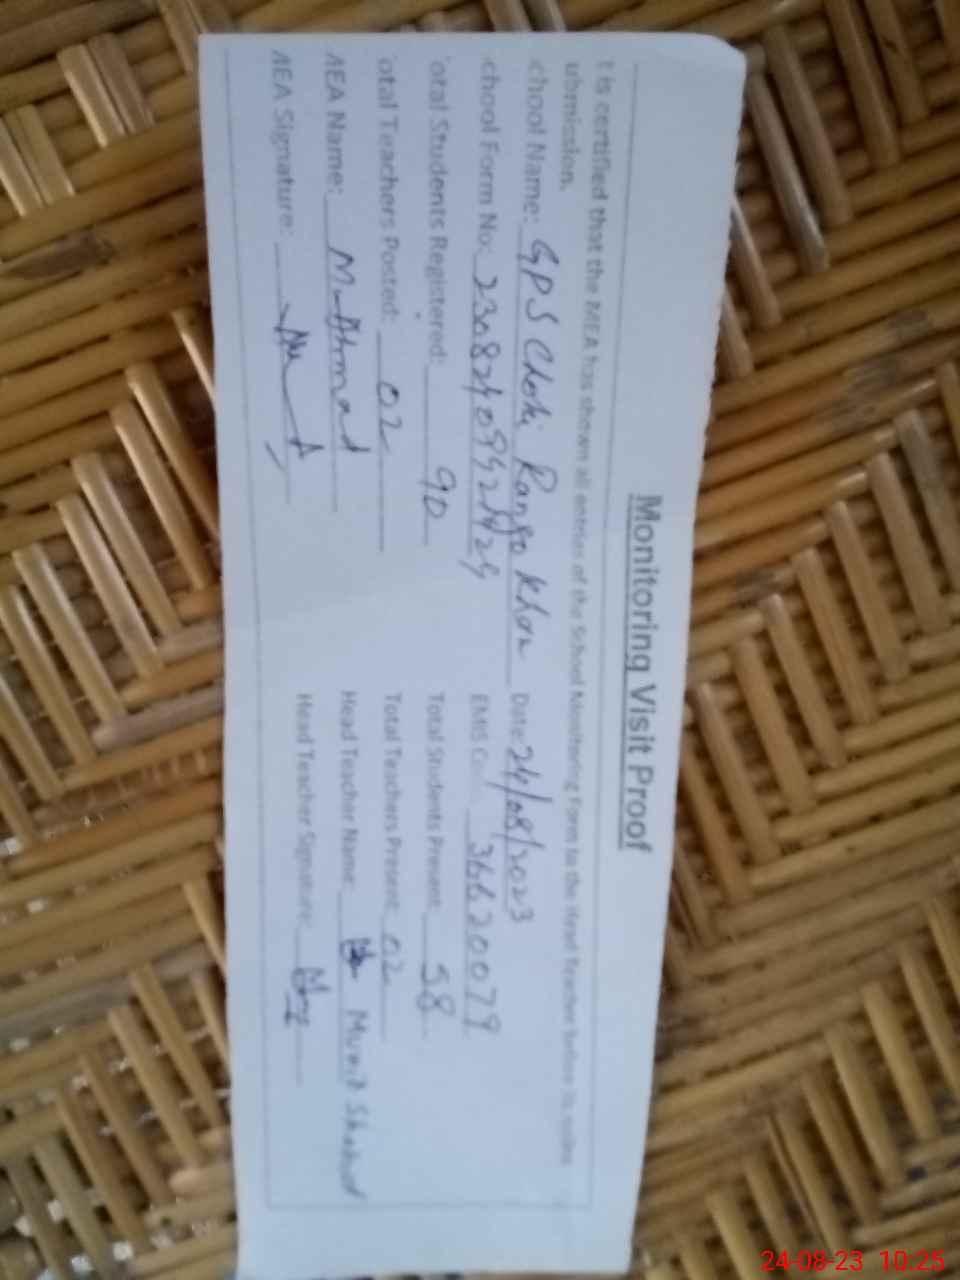 Monitoring Visit Proof
t is certified that the MEA has shown all entries of the School Monitoring Form to the Head Teacher before its online
ubmission.
chool Name: GPS Choki Rango Khan Date: 24/08/2023
chool Form No: EMIS Code 36620079
otal Students Registered: 90 Total Students Present: 58
otal Teachers Posted: 02 Total Teachers Present: 02
MEA Name: M. Ahmad Head Teacher Name:
MEA Signature: Head Teacher Signature:
24-08-23 10:25